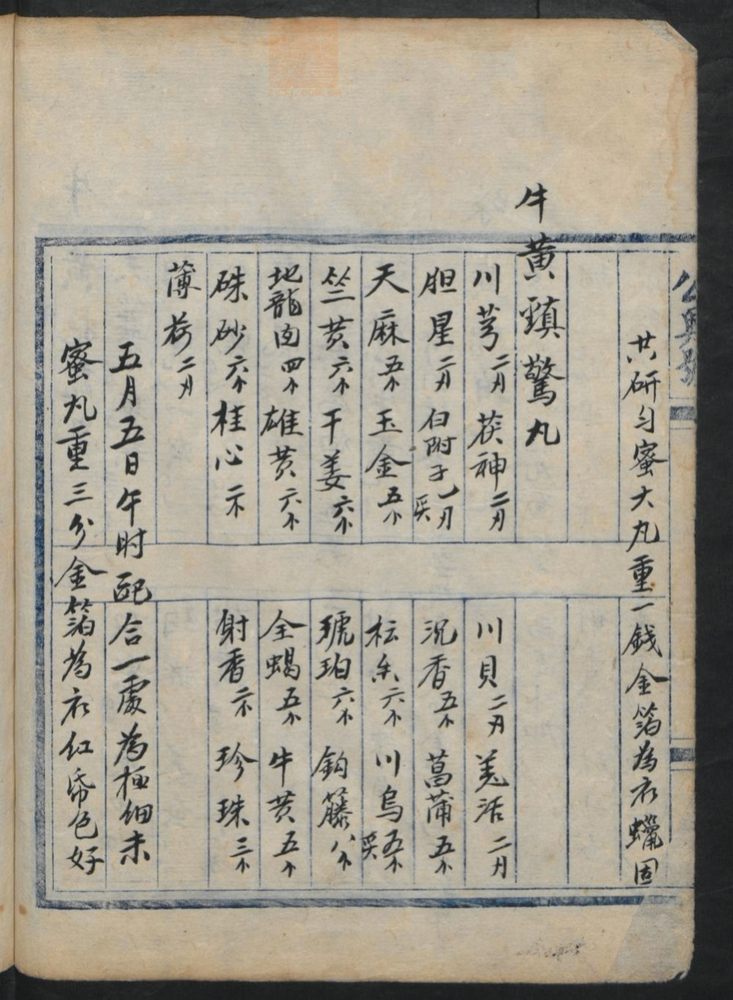 公興號
共研勻蜜大丸重一錢金箔為衣蠟固
牛黃鎮驚丸
川芎二刄 茯神二刄 川貝二刄 羌活二刄
胆星二刄 白附子一刄 沉香五个 菖蒲五个
天麻五个 玉金五个 枟朱六个 川烏五个
竺黃六个 干姜六个 琥珀六个 鈎籐八个
地龍肉四个 雄黃六个 全蝎五个 牛黃五个
硃砂六个 桂心二个 射香二个 珍珠三个
薄荷二刄
五月五日午时配合一處為極细末
蜜丸重三分金箔為衣红帋色好